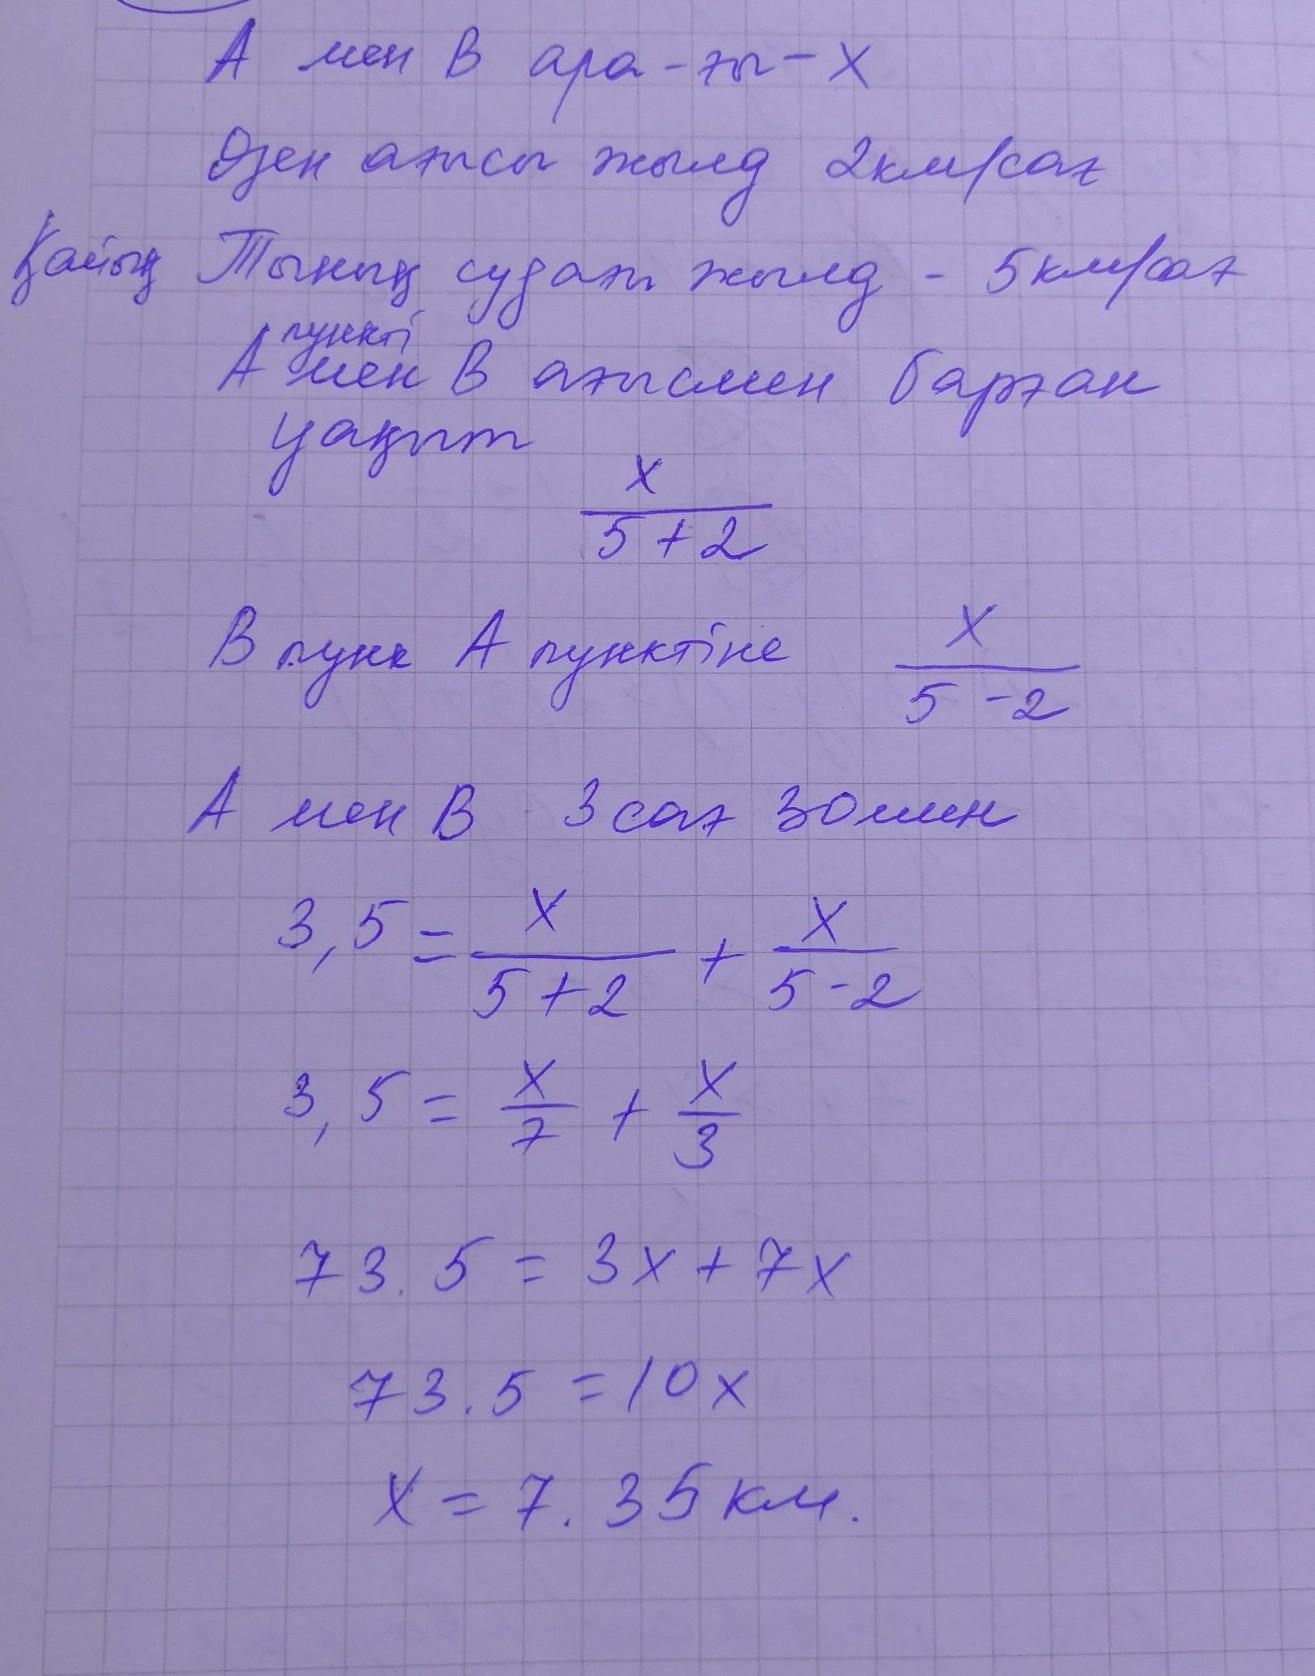 А мен В ара-ғы - х
Өзен ағысы жылд 2км/сағ
Қайық Тынық судағы жылд - 5км/сағ
пункті
А мен В ағысмен барған
уақыт
x
5+2
В пунк А пунктіне x
5-2
А мен В 3сағ 30мин
3,5 = x/(5+2) + x/(5-2)
3,5 = x/7 + x/3
73.5 = 3x + 7x
73.5 = 10x
x = 7.35км.